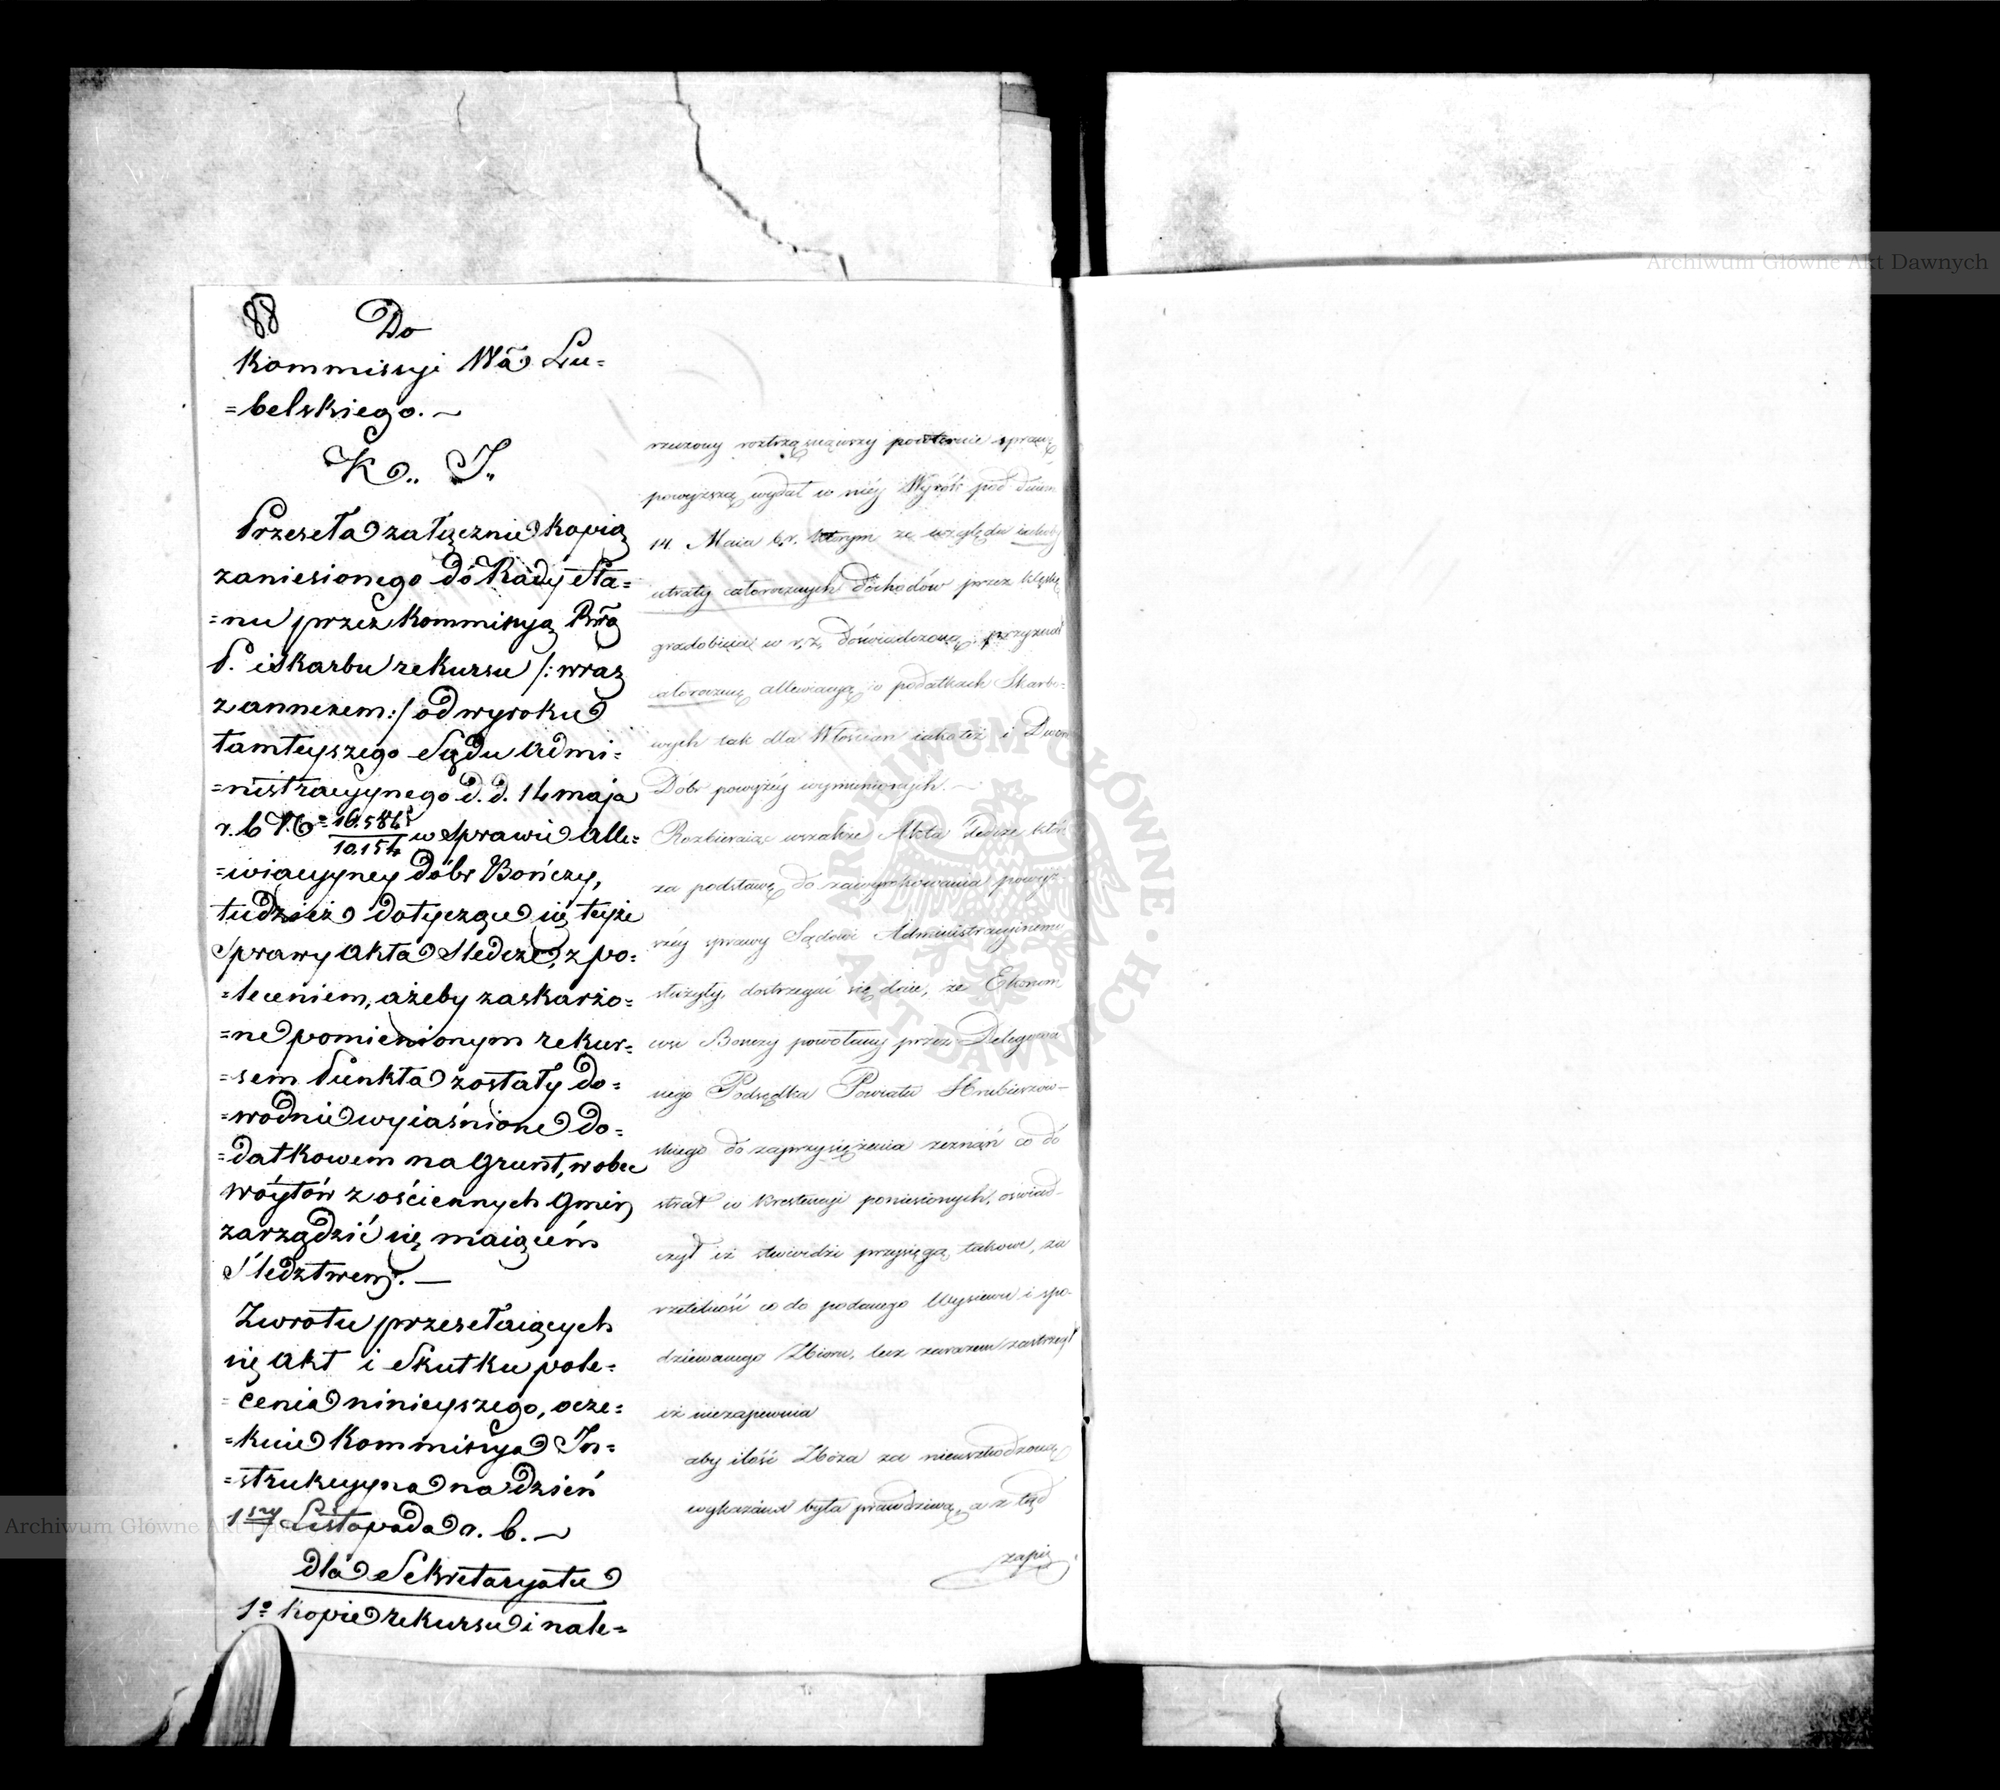 88
Do
Kommissyi Wa Lu=
=belskiego. —
K.. I..
Przeseła załącznie kopią
zaniesionego do Rady Sta=
=nu przez Kommissyą Rwą
P. i Skarbu rekursu /: wraz
z annexem :/ od wyroku
tamteyszego Sądu Admi=
=nistracyynego d. d. 14 maja
r. b No 10.154 w sprawie alle=
=wiacyyney dóbr Bończy,
tudzież dotyczące się teyże
Sprawy akta Sledcze, z po=
=leceniem, ażeby zaskarżo=
=ne pomienionym rekur=
=sem Punkta zostały do=
=wodnie wyiaśnione do=
=datkowem na Grunt, w obec
Wóytów z ościennych Gmin
zarządzić się maiącem
Śledztwem. —
Zwrotu przesełaiących
się akt i Skutku pole=
=cenia ninieyszego, ocze=
=kuie Kommissya In=
=strukcyyna na dzień
1szy Listopada r. b. —
dla Sekretaryatu
1o kopie rekursu i nale=
rzuzony roztrząsnąwszy powtórnie sprawę
powyższą wydał w niéy Wyrok pod dniem
14. Maia b. r. którym ze względu iakoby
utraty całorocznych dochodów przez klęskę
gradobicia w r. z. doświadczoną, przyznał
całoroczną allewiacyą w podatkach Skarbo=
wych tak dla Włościan iakoteż i Dworu
Dobr powyżéy wymienionych. —
Rozbieraiąc wszakże Akta Śledcze które
za podstawę do zawyrokowania powyż=
széy sprawy Sądowi Administracyinemu
służyły, dostrzegać się daie, że Ekonom
wsi Bonczy powołany przez Delegowa
nego Podsędka Powiatu Hrubieszow—
skiego do zaprzysiężenia zeznań co do
strat w krestencyi poniesionych, oświad—
czył iż stwierdzi przysięgą takowe, za
rzetelność co do podanego Wysiewu i spo=
dziewanego Zbioru, lecz zarazem zastrzegł
iż niezapewnia
aby ilość Zboża za nieuszkodzoną
wykazana była prawdziwą, a z tąd
zapis
ARCHIWUM GŁÓWNE AKT DAWNYCH
Archiwum Główne Akt Dawnych
Archiwum Główne Akt Dawnych